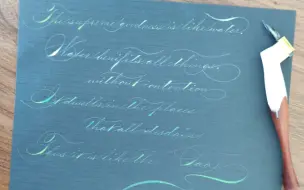 The supreme goodness is like water.
Water benefits all things
without contention.
In dwelling, the places
that all disdain
This is like the Dao